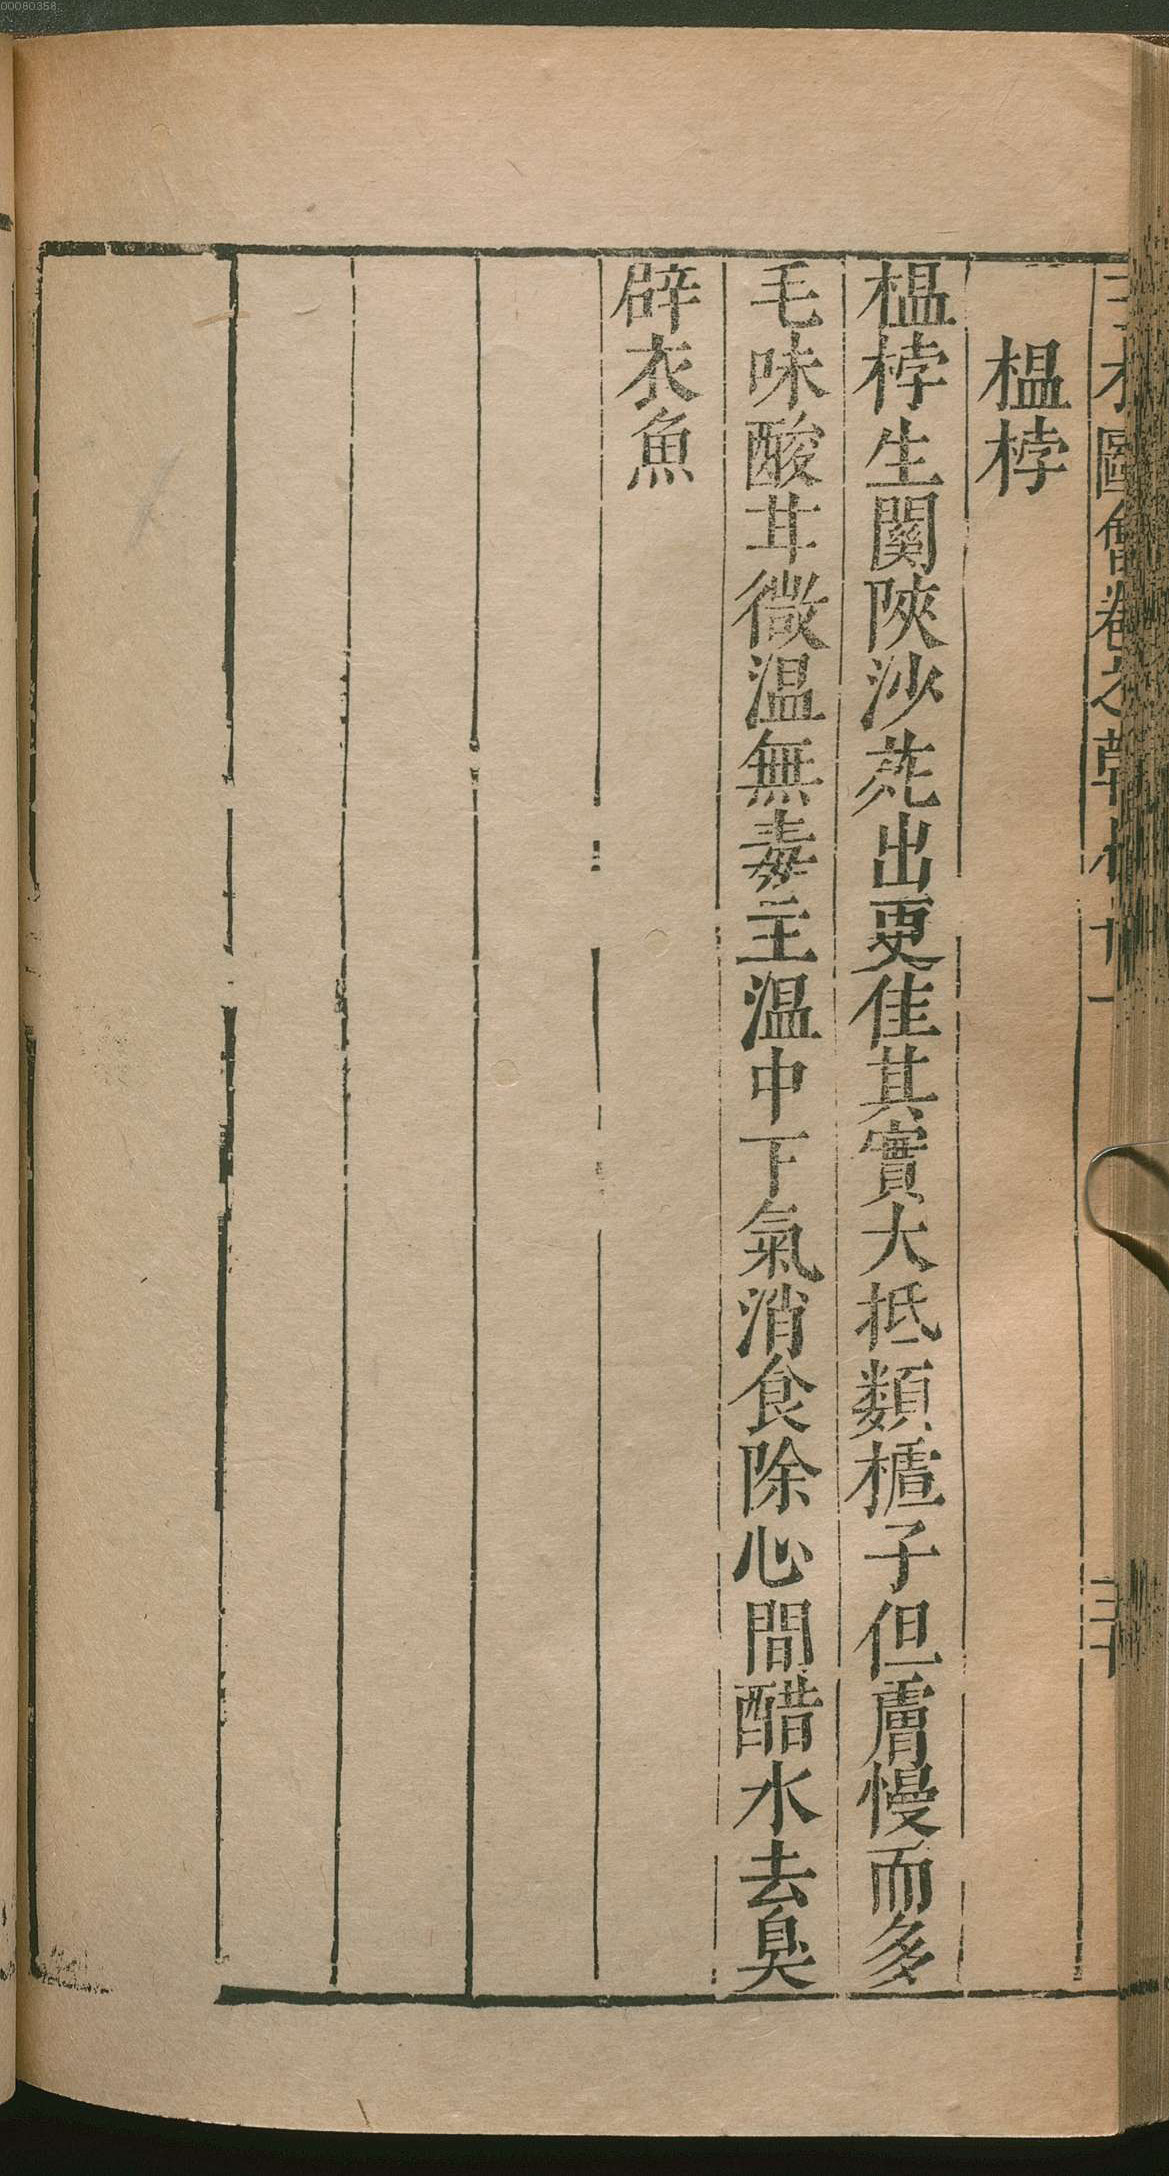 00080358
榲桲
榲桲生關陝沙苑出更佳其實大抵類樝子但膚慢而多
毛味酸甘微温無毒主温中下氣消食除心間醋水去臭
辟衣魚
圖會卷之